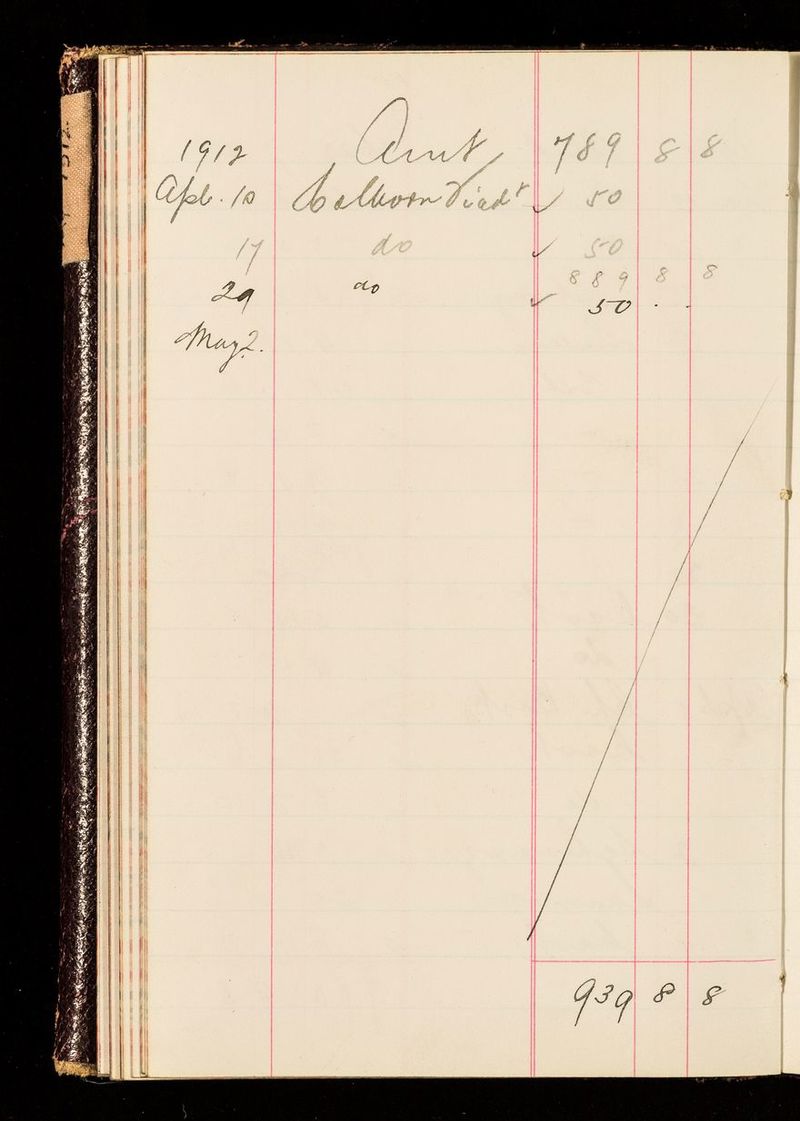 1912 Amt 789 8 8
Apl. 10 ✓ 50
17 do ✓ 50
889 8 8
29 do ✓ 50 . .
May 2.
939 8 8